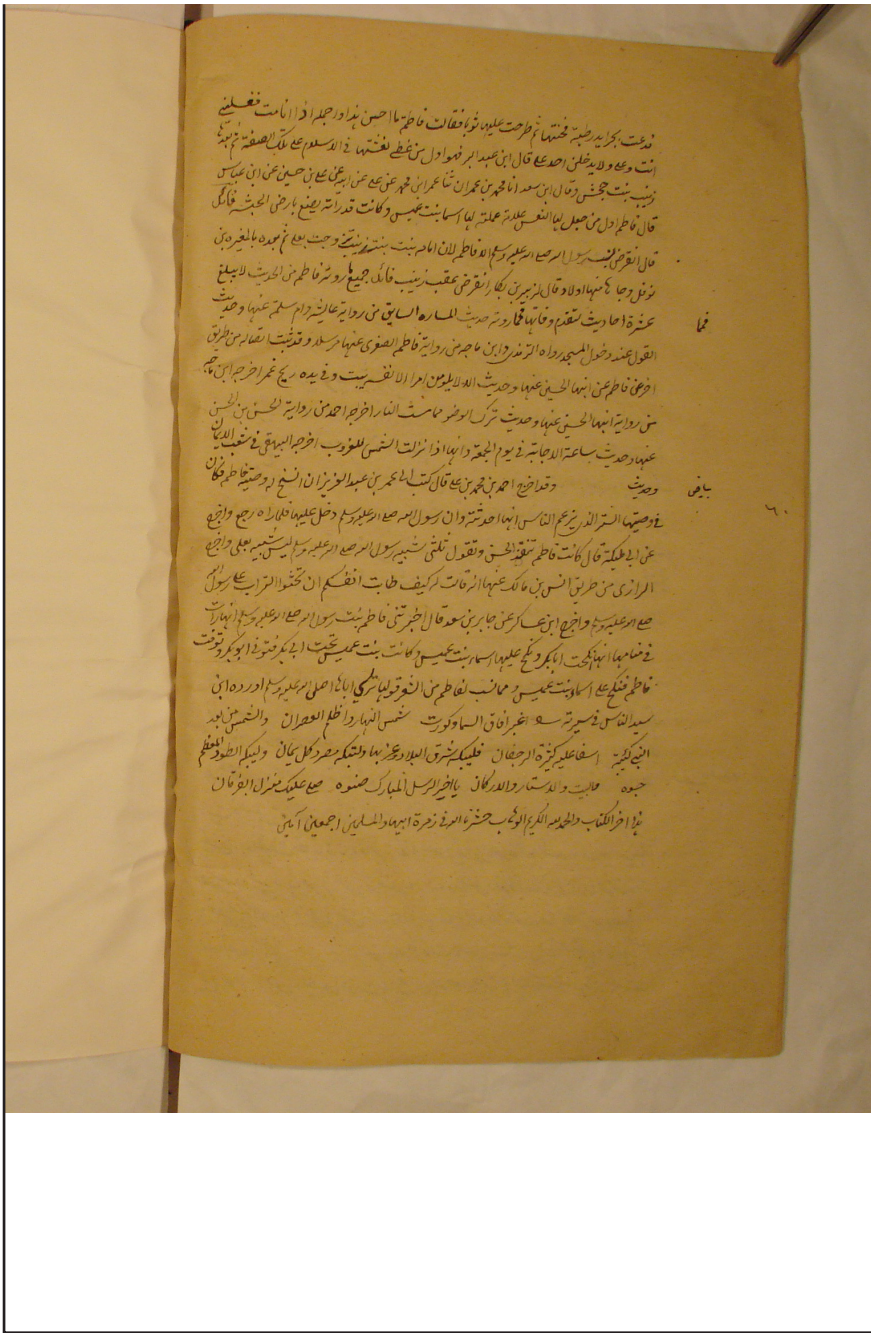 فدعت بجرايد رطبة فحنتها ثم طرحت عليها ثوبا فقالت فاطمة ما احسن هذا وجمله اذا انامت فغسليني
انت وعلى ولا يدخلن احد على قال ابن عبد البر فهو اول من غطى نعشها فى الاسلام على تلك الصفة ثم بعدها
زينب بنت جحش وقال ابن سعد انا محمد بن عمر ان ثنا عمر ابن محمد عن على عن ابيه عن على بن حسين عن ابن عباس
قال فاطمة اول من جعل لها النعش عملته لها اسما بنت عميس وكانت قد راته يصنع بارض الحبشة
قال انقرض نسب رسول الله صلى الله عليه وسلم الا فاطمة لان امامه بنت بنته زينب تزوجت بعلى ثم بعده بالمغيره بن
نوفل وجا منها اولاد قال الزبير بن بكار انقرض عقب زينب جميع ما روته فاطمة من الحديث لا يبلغ
عشرة احاديث لتقدم وفاتها فما روته حديث المساره السابق من رواية عايشه وام سلمة عنها وحديث
فما
القول عند دخول المسجد رواه الترمذى وابن ماجه من رواية فاطمة الصغرى عنها مرسلا وقد ثبت اتصاله من طريق
اخر عن فاطمة عن ابنها الحسين عنها وحديث الا لا يلومن امرا الا نفسه يبيت وفى يده ريح غمر اخرجه ابن ماجه
من رواية ابنها الحسين عنها وحديث ترك الوضو مما مست النار اخرجه احمد من رواية الحسن بن الحسن
عنها وحديث ساعة الاجابة فى يوم الجمعة وانها اذا نزلت الشمس للغروب اخرجه البيهقى فى شعب الايمان
وحديث وقد اخرج احمد بن محمد بن على قال كتب الى عمر بن عبد العزيز ان انسخ له وصية فاطمة فكان
بياض
فى وصيتها الستر الذى يزعم الناس انها احدثته وان رسول الله صلى الله عليه وسلم دخل عليها فلما راه رجع واخرج
٦٠
عن ابى مليكة قال كانت فاطمة تنقز الحسن وتقول شبيه رسول الله صلى الله عليه وسلم ليس شبيه بعلى واخرج
الرازى من طريق انس بن مالك عنها انه قالت له كيف طابت انفسكم ان تحثوا التراب على رسول الله
صلى الله عليه وسلم واخرج ابن عساكر عن جابر بن سعد قال اخبرتنى فاطمة بنت رسول الله صلى الله عليه وسلم انها رات
فى منامها انها نكحت ابا بكر ونكح عليها اسماء بنت عميس وكانت بنت عميس تحت ابى بكر فتوفى ابو بكر وتوفت
فاطمة فنكح على اسماء بنت عميس ومما نسب لفاطمة من الشعر قولها ترثى اباها صلى الله عليه وسلم اورده ابن
سيد الناس فى سيرته اغبر افاق السما وكورت شمس النهار واظلم العصران والشمس من بعد
النبى كئيبة اسفا عليه كثيرة الرجفان فليبكه شرق البلاد وغربها ولتبكه مضر وكل يمان وليبكه الطود المعظم
جوه والبيت والاستار والاركان يا خير الرسل المبارك صنوه صلى عليك منزل الفرقان
هذا اخر الكتاب والحمد لله الكريم الوهاب حشرنا الله فى زمرة ابيها والمسلمين اجمعين آمين